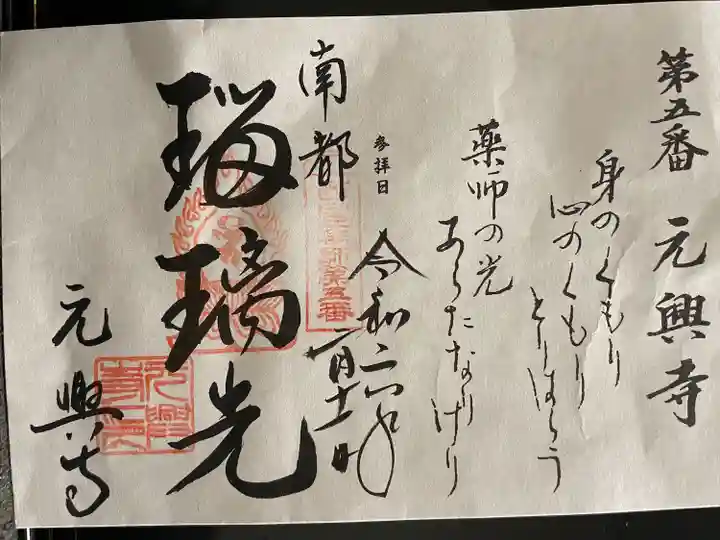 第五番 元興寺
身のくもり
心のくもり
とりはらう
薬師の光
あらたなりけり
参拝日
令和六年
月十一日
南都
瑠璃光
元興寺
第五番